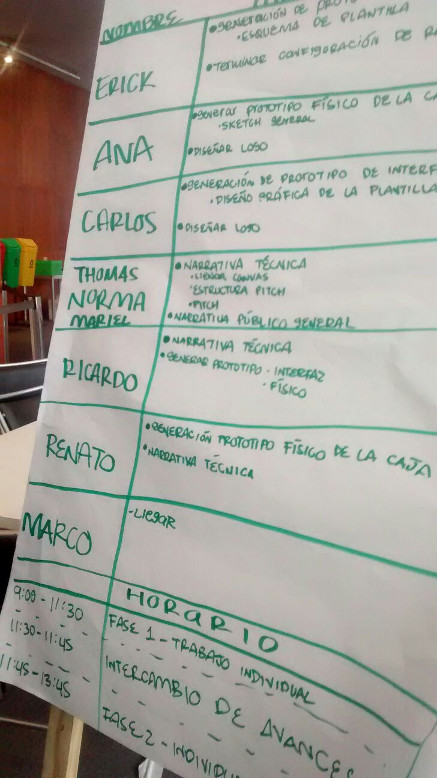 NOMBRE
• GENERACIÓN DE
• ESQUEMA DE PLANTILLA
ERICK
• TERMINAR CONFIGURACIÓN DE
• Generar PROTOTIPO FÍSICO DE LA
• SKETCH GENERAL
ANA
• DISEÑAR LOGO
• GENERACIÓN DE PROTOTIPO DE INTERF
• DISEÑO GRÁFICA DE LA PLANTILLA
CARLOS
• DISEÑAR LOGO
THOMAS
NORMA
MARIEL
• NARRATIVA TÉCNICA
CANVAS
• ESTRUCTURA PITCH
• PITCH
• NARRATIVA PÚBLICO GENERAL
RICARDO
• NARRATIVA TÉCNICA
• GENERAR PROTOTIPO • INTERFAZ
• FÍSICO
RENATO
• GENERACIÓN PROTOTIPO FÍSICO DE LA CAJA
• NARRATIVA TÉCNICA
MARCO
- LlEGAR
HORARIO
9:00 - 11:30 FASE 1 - TRABAJO INDIVIDUAL
11:30 - 11:45 INTERCAMBIO DE AVANCES
11:45 - 13:45 FASE 2 - INDIVIDU